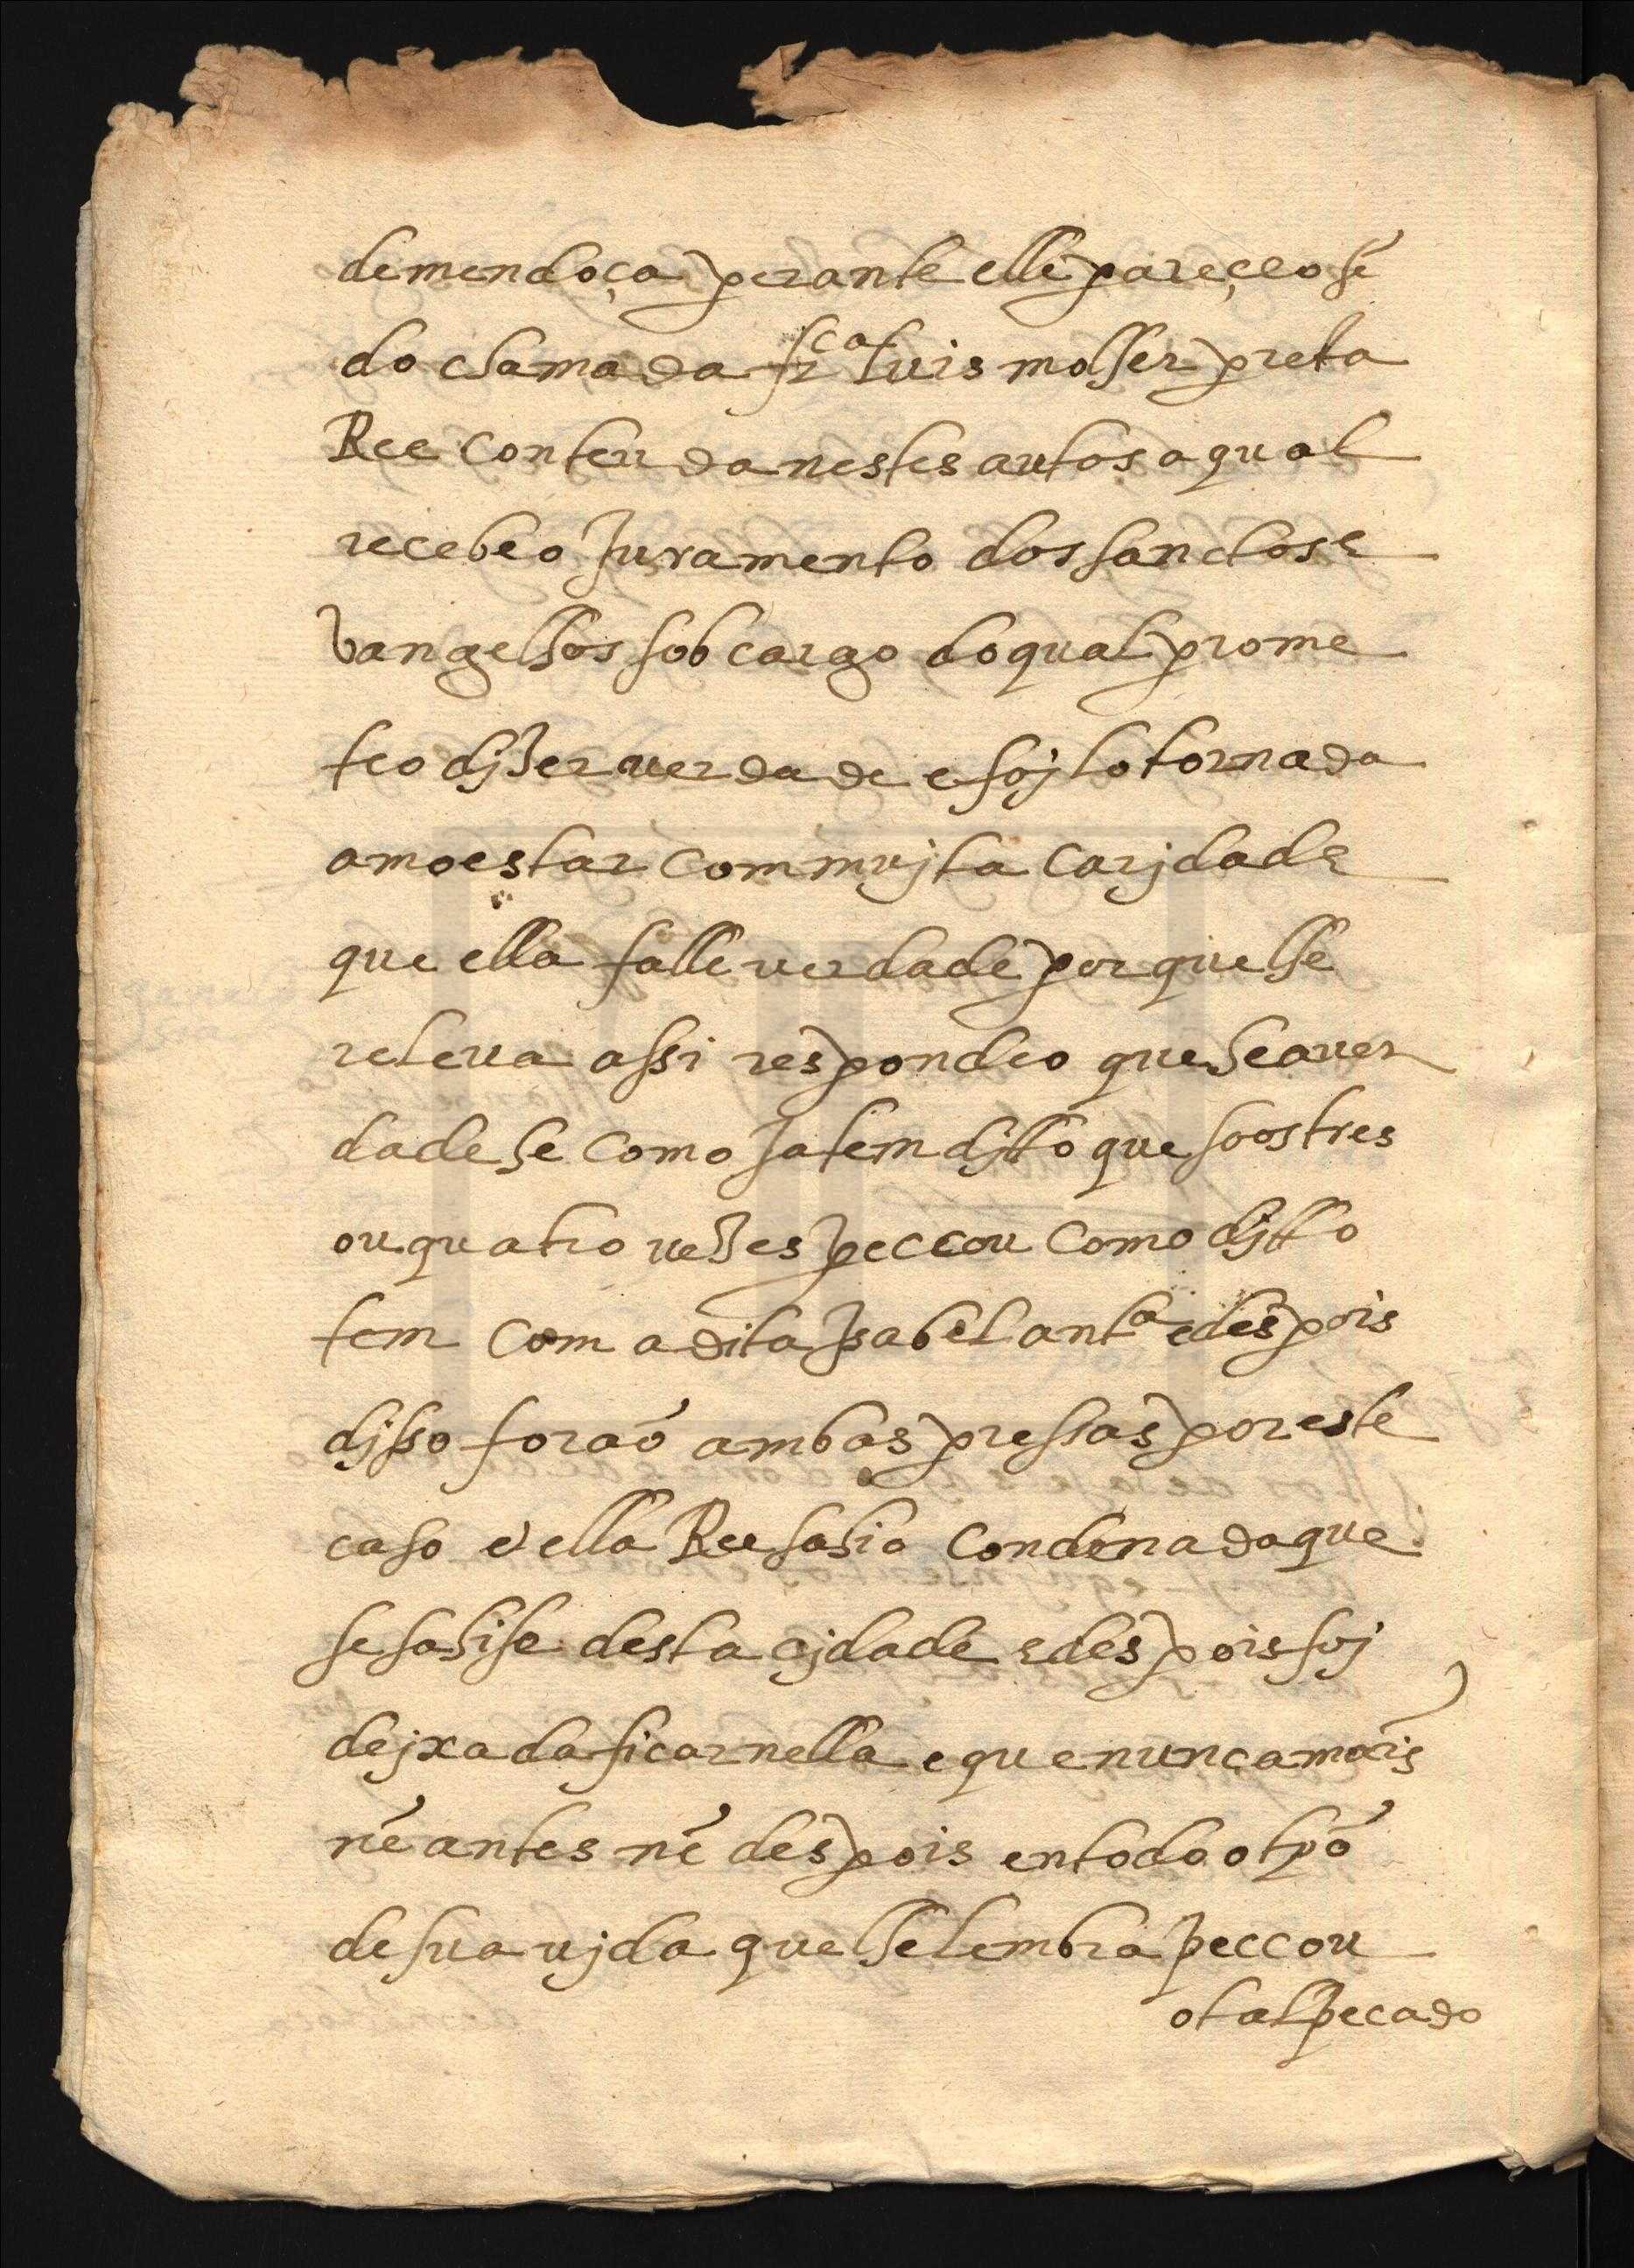 de mendoça perante elle pareçeo sẽ
do chamada frca luis molher preta
Ree conteuda nestes autos a qual
recebeo Juramento dos sanctos e
vangelhos sob cargo do qual prome
teo djzer uerdade e fojlo tornada
amoestar com mujta carjdade
que ella falle uerdade por que lhe
releua assi respondeo que he a uer
dade he como Ja tem djtto que soos tres
ou quatro uezes peccou como djtto
tem com a dita Isabel antª e despois
djsso forão ambas pressas por este
caso e ella Ree sahio condenada que
se sahise desta cjdade e despois foj
dejxada ficar nella e que nunca mais
nẽ antes nẽ despois en todo o tpõ
de sua ujda que lhe lembra peccou
o tal peccado